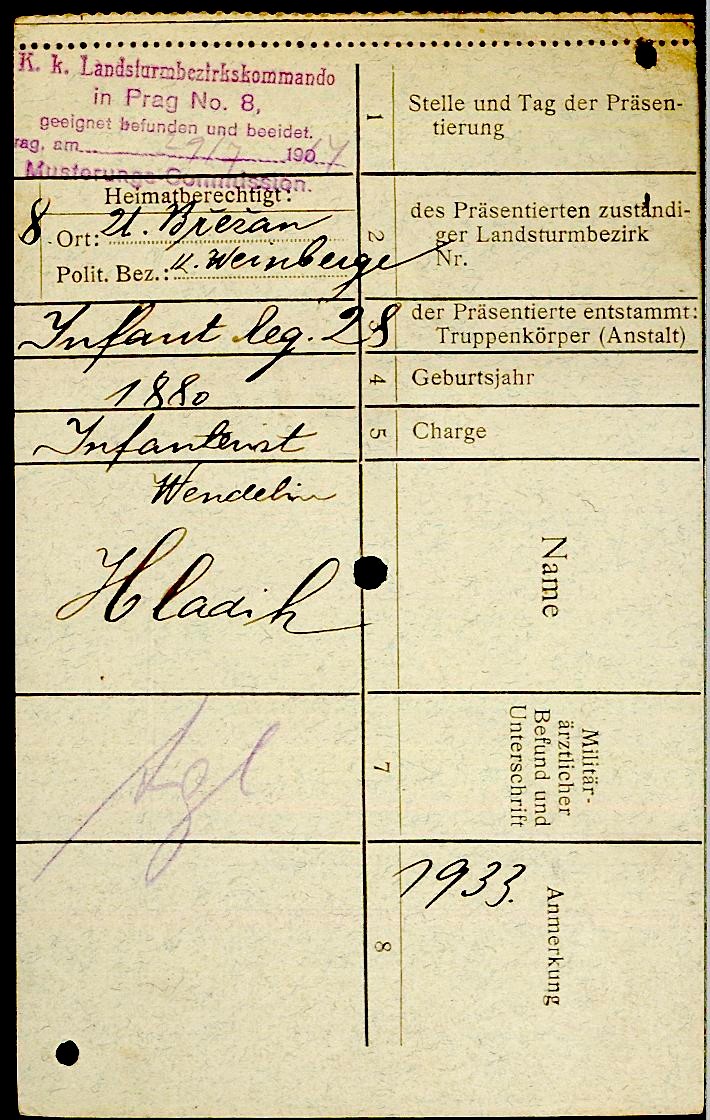 K. k. Landsturmbezirkskommando
in Prag No. 8,
geeignet befunden und beeidet.
rag, am 29/7 190
Musterungs-Commission.
1 Stelle und Tag der Präsen-
tierung
Heimatberechtigt:
8 Ort: U. Břežan
Polit. Bez.: K. Weinberge
2 des Präsentierten zuständi-
ger Landsturmbezirk
Nr.
Infant Reg. 28
3 der Präsentierte entstammt:
Truppenkörper (Anstalt)
1880
4 Geburtsjahr
Infanterist
5 Charge
Wendelin
Hladik
Name
7 Militär-
ärztlicher
Befund und
Unterschrift
1933.
8 Anmerkung